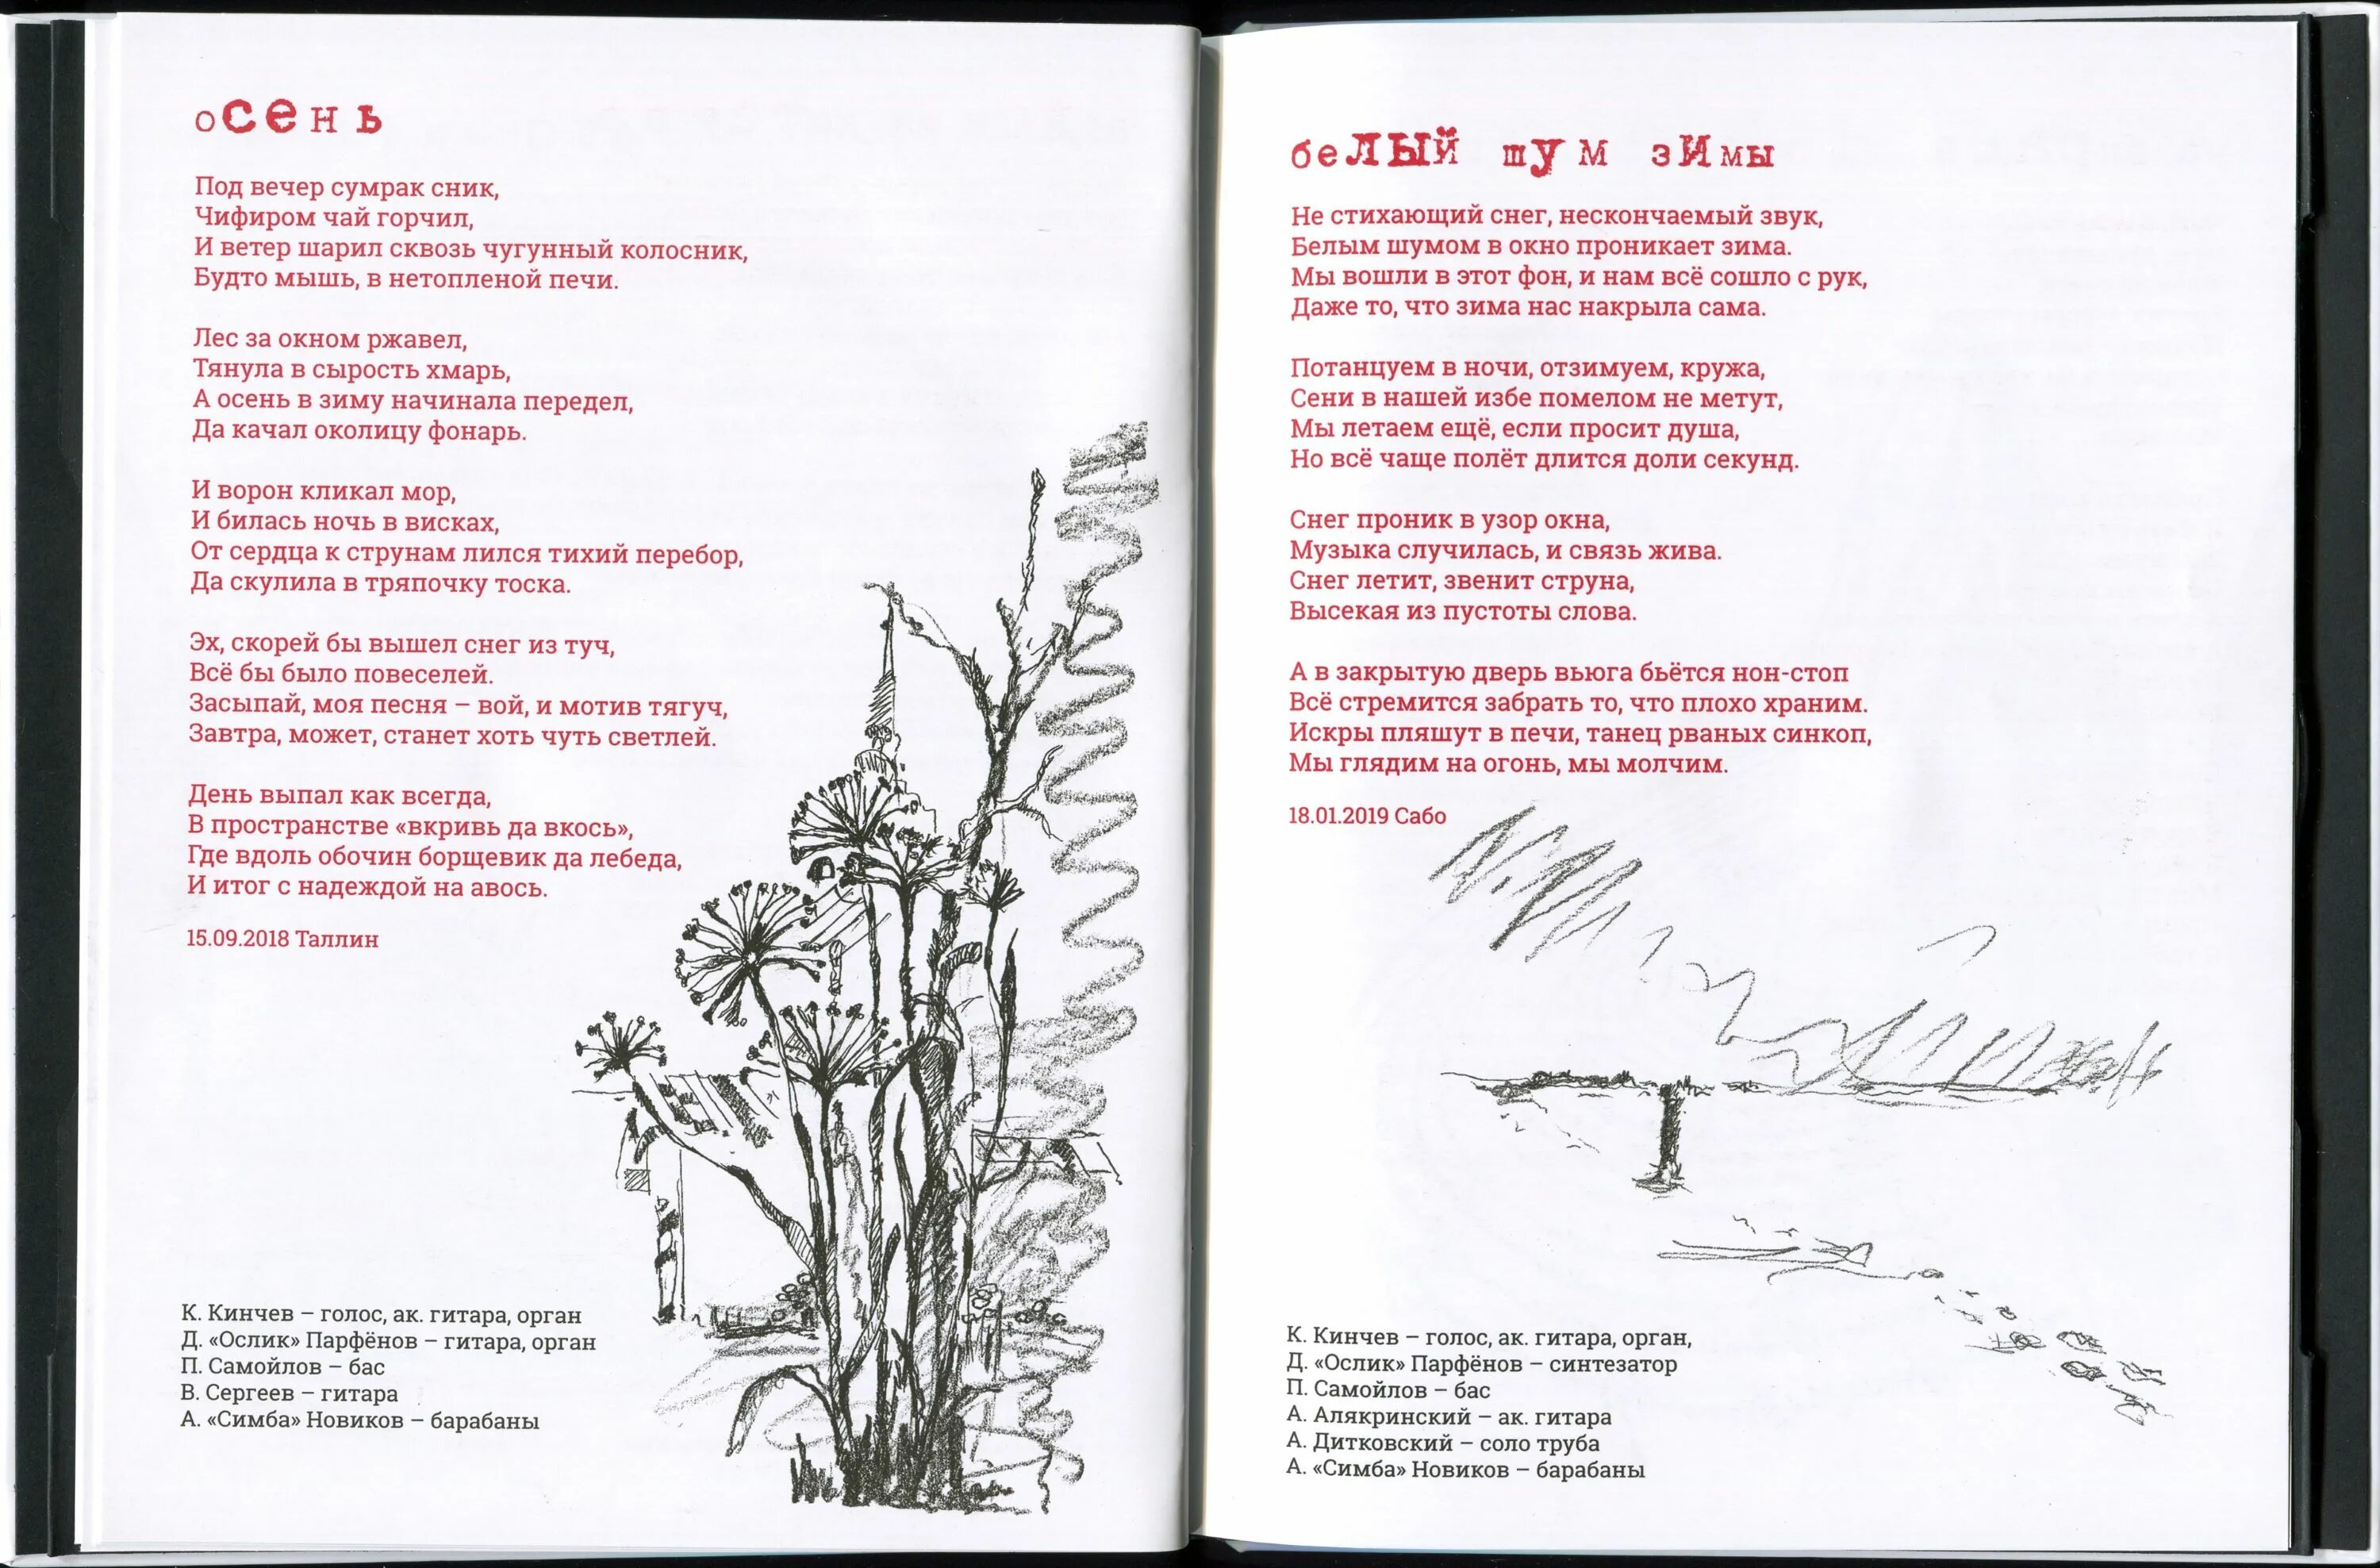 осень
Под вечер сумрак сник,
Чифиром чай горчил,
И ветер шарил сквозь чугунный колосник,
Будто мышь, в нетопленой печи.
Лес за окном ржавел,
Тянула в сырость хмарь,
А осень в зиму начинала передел,
Да качал околицу фонарь.
И ворон кликал мор,
И билась ночь в висках,
От сердца к струнам лился тихий перебор,
Да скулила в тряпочку тоска.
Эх, скорей бы вышел снег из туч,
Всё бы было повеселей.
Засыпай, моя песня – вой, и мотив тягуч,
Завтра, может, станет хоть чуть светлей.
День выпал как всегда,
В пространстве «вкривь да вкось»,
Где вдоль обочин борщевик да лебеда,
И итог с надеждой на авось.
15.09.2018 Таллин
К. Кинчев – голос, ак. гитара, орган
Д. «Ослик» Парфёнов – гитара, орган
П. Самойлов – бас
В. Сергеев – гитара
А. «Симба» Новиков – барабаны
белый шум зимы
Не стихающий снег, нескончаемый звук,
Белым шумом в окно проникает зима.
Мы вошли в этот фон, и нам всё сошло с рук,
Даже то, что зима нас накрыла сама.
Потанцуем в ночи, отзимуем, кружа,
Сени в нашей избе помелом не метут,
Мы летаем ещё, если просит душа,
Но всё чаще полёт длится доли секунд.
Снег проник в узор окна,
Музыка случилась, и связь жива.
Снег летит, звенит струна,
Высекая из пустоты слова.
А в закрытую дверь вьюга бьётся нон-стоп
Всё стремится забрать то, что плохо храним.
Искры пляшут в печи, танец рваных синкоп,
Мы глядим на огонь, мы молчим.
18.01.2019 Сабо
К. Кинчев – голос, ак. гитара, орган,
Д. «Ослик» Парфёнов – синтезатор
П. Самойлов – бас
А. Алякринский – ак. гитара
А. Дитковский – соло труба
А. «Симба» Новиков – барабаны